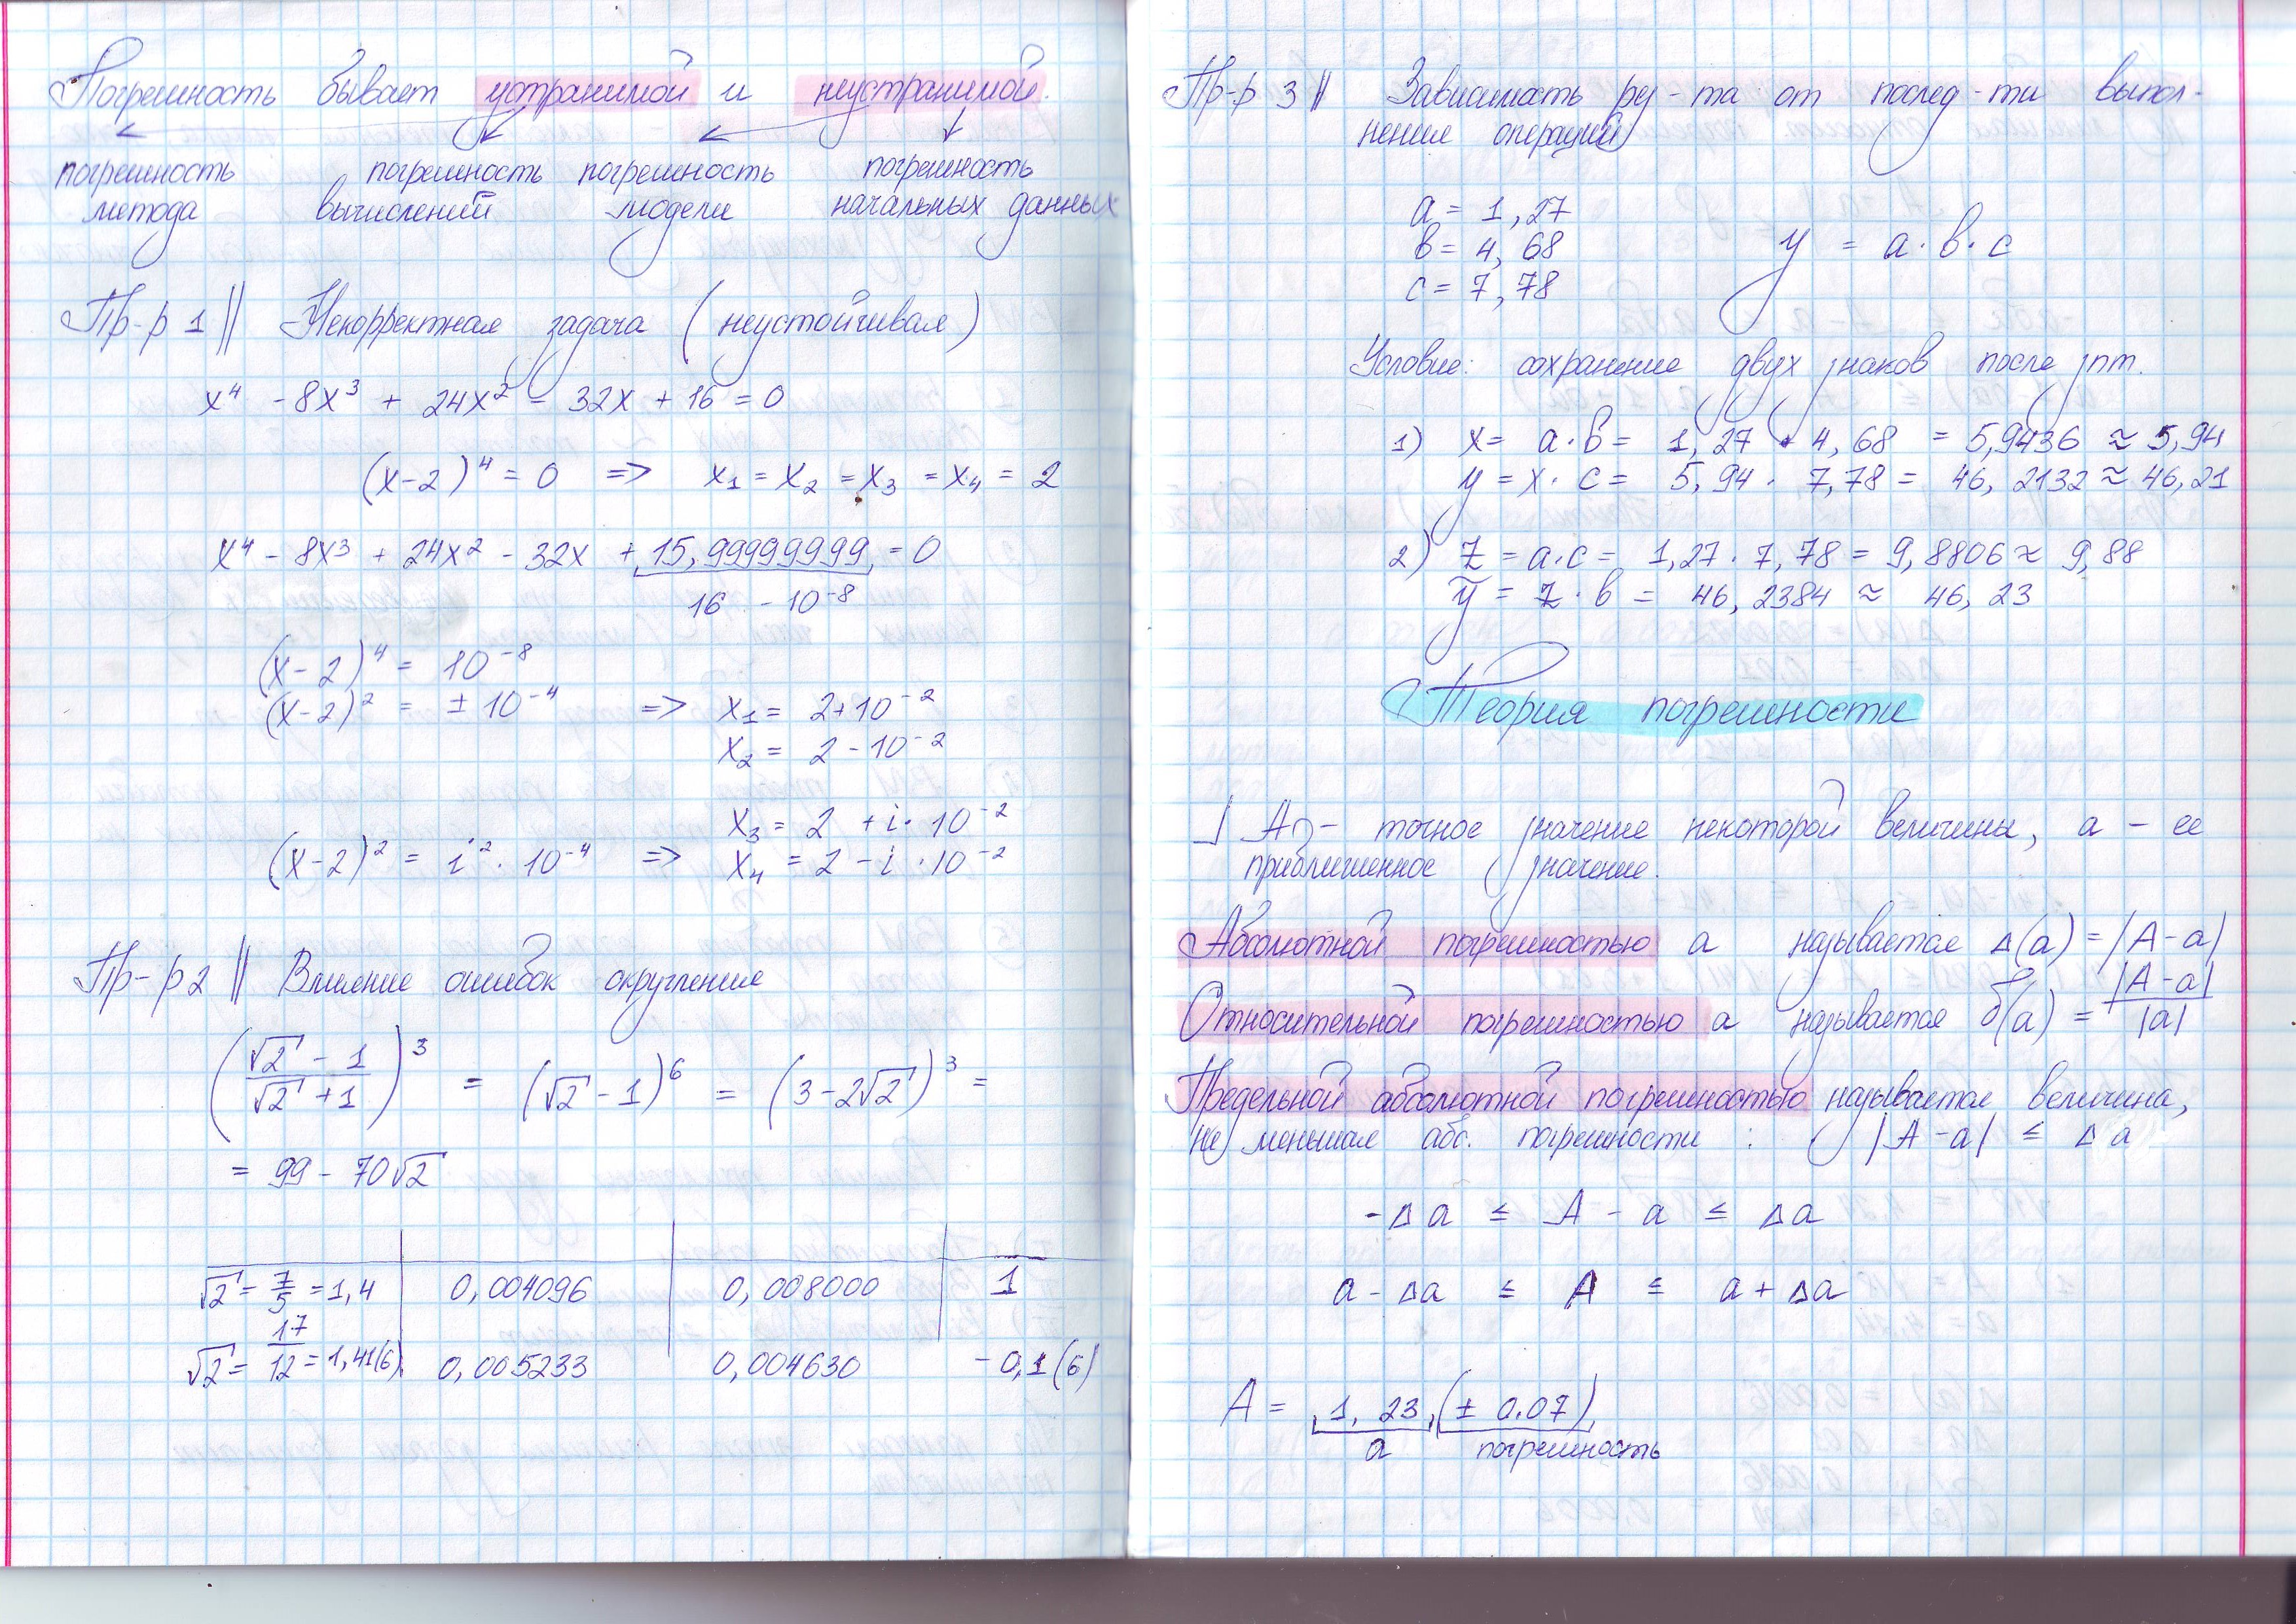 Погрешность бывает устранимой и неустранимой.
погрешность метода
погрешность вычислений
погрешность модели
погрешность начальных данных
Пр-р 1 || Некорректная задача (неустойчивая)
x⁴ - 8x³ + 24x² - 32x + 16 = 0
(x-2)⁴ = 0 => x₁ = x₂ = x₃ = x₄ = 2
x⁴ - 8x³ + 24x² - 32x + 15,99999999 = 0
16 - 10⁻⁸
(x-2)⁴ = 10⁻⁸
(x-2)² = ± 10⁻⁴ => x₁ = 2+10⁻²
x₂ = 2-10⁻²
x₃ = 2 + i· 10⁻²
(x-2)² = i²· 10⁻⁴ => x₄ = 2 - i ·10⁻²
Пр-р 2 || Влияние ошибок округления
((√2 - 1)/(√2 + 1))³ = (√2 - 1)⁶ = (3 - 2√2)³ =
= 99 - 70√2
√2 = 7/5 = 1,4 | 0,004096 | 0,008000 | 1
√2 = 17/12 = 1,41(6) | 0,005233 | 0,004630 | -0,1(6)
Пр-р 3 || Зависимость ру-та от послед-ти выпол-
нения операций
a = 1,27
в = 4,68
y = a·в·c
c = 7,78
Условие: сохранение двух знаков после зпт.
1) x = a·в = 1,27 · 4,68 = 5,9436 ≈ 5,94
y = x· c = 5,94 · 7,78 = 46,2132 ≈ 46,21
2) z = a·c = 1,27 · 7,78 = 9,8806 ≈ 9,88
y = z·в = 46,2384 ≈ 46,23
Теория погрешности
A - точное значение некоторой величины, a - ее
приближенное значение.
Абсолютной погрешностью a называется Δ(a) = |A-a|
Относительной погрешностью a называется δ(a) = |A-a|/|a|
Предельной абсолютной погрешностью называется величина,
не меньшая абс. погрешности : |A-a| ≤ Δa
-Δa ≤ A - a ≤ Δa
a - Δa ≤ A ≤ a + Δa
A = 1,23 (± 0.07)
a погрешность